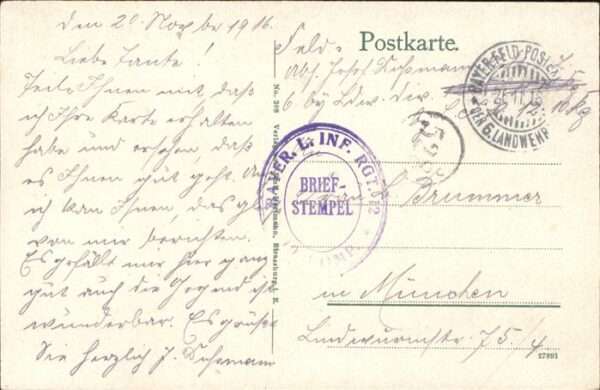 den 20 Novbr 1916.
Liebe Tante!
Teile Ihnen mit daß
ich Ihre Karte erhalten
habe und ersehen daß
es Ihnen gut geht. Auch
ich kan Ihnen, das gleiche
von mir berichten.
Es gefällt mir hier ganz
gut auch die Gegend ist
wunderbar. Es grüßt
Sie herzlich J.
No. 208 Verlag
Strassburg i. E.
Postkarte.
Feld=
Abs. Josef
6 bay Ldw. Div.
BAYER. FELD-POSTEX
DER 6. LANDWEHR
L. INF. RGT.
BRIEF-
STEMPEL
Brummer
in München
Lindwurmstr. 75./4
27891